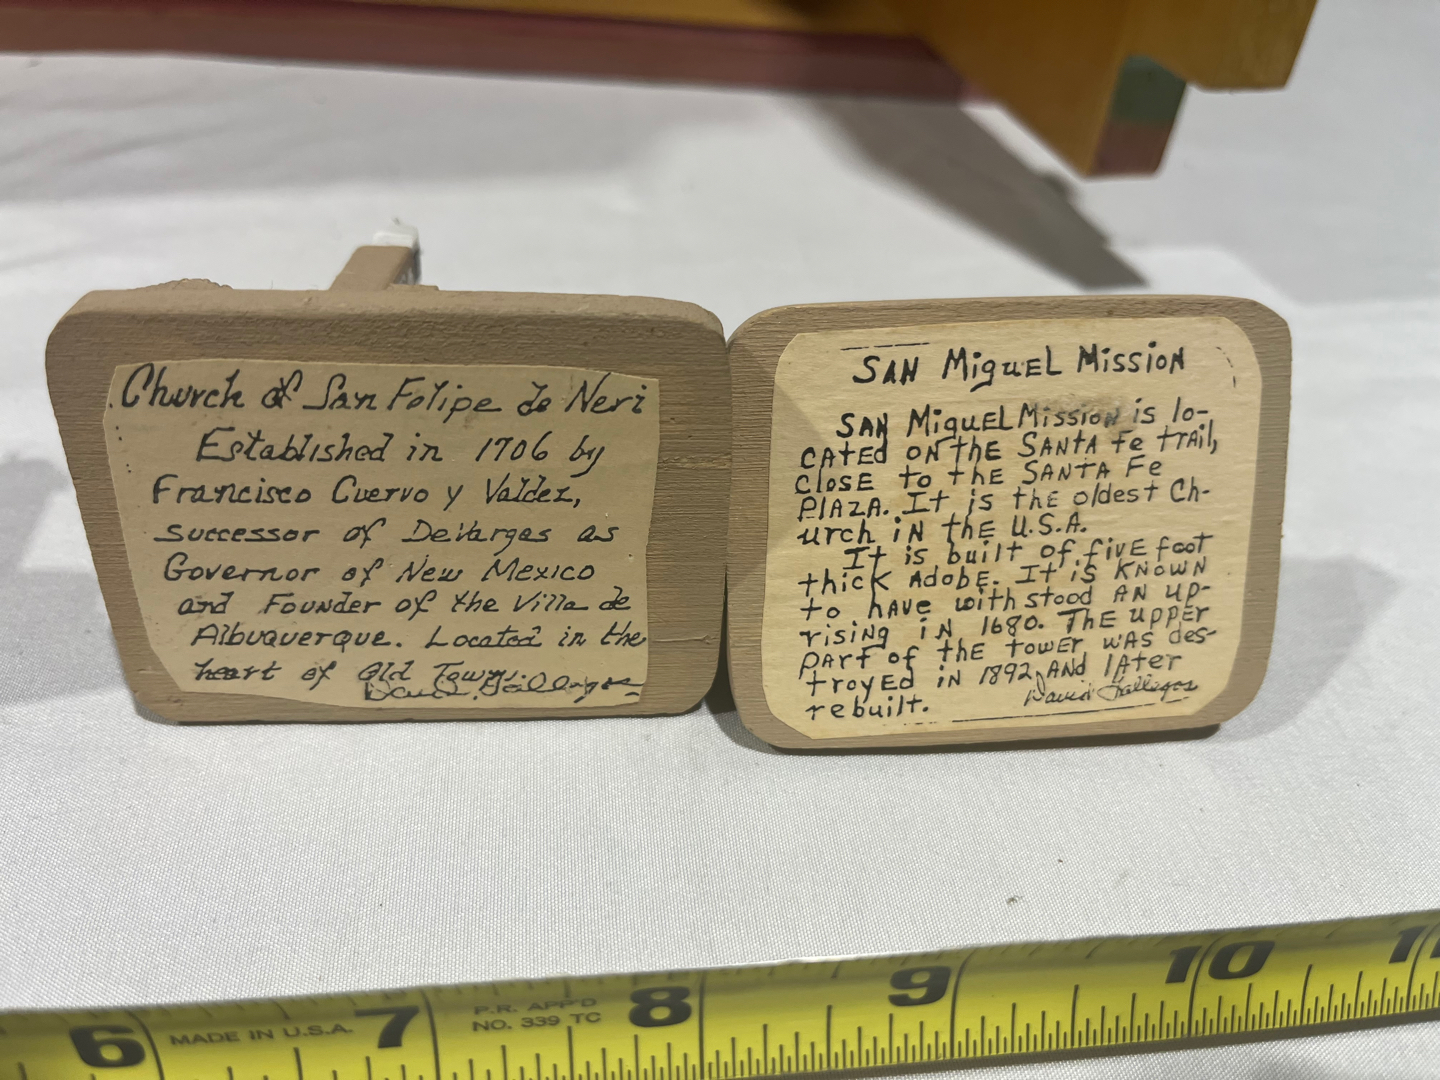 Church of San Felipe de Neri
Established in 1706 by
Francisco Cuervo y Valdez,
successor of DeVargas as
Governor of New Mexico
and Founder of the Villa de
Albuquerque. Located in the
heart of Old Town.
David Gallegos
SAN MiguEL MissioN
SAN MiguEL MissioN is lo-
CAtEd ON thE SANtA Fe trAil,
ClosE to thE SANTA FE
PlAZA. It is thE oldEst Ch-
urch iN thE U.S.A.
It is built of fivE foot
thick AdobE. It is KNOWN
to hAvE withstood AN up-
risiNg iN 1680. ThE uppEr
pArt of thE towEr wAs dEs-
troyEd iN 1892, ANd lAtEr
rebuilt.
David Gallegos
6 7 8 9 10 11
MADE IN U.S.A.
P.R. APP'D
NO. 339 TC